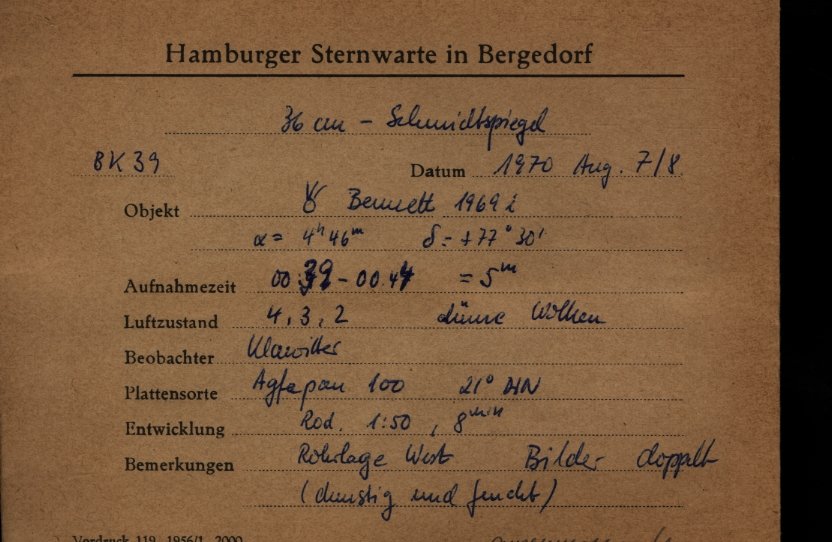 Hamburger Sternwarte in Bergedorf
36 cm – Schmidtspiegel
BK 39 Datum 1970 Aug. 7/8
Objekt ☄ Bennett 1969 i
α = 4ʰ 46ᵐ δ = +77° 30'
Aufnahmezeit 00.39 – 00.44 = 5ᵐ
Luftzustand 4, 3, 2 dünne Wolken
Beobachter Klawitter
Plattensorte Agfapan 100 21° DIN
Entwicklung Rod. 1:50, 8ᵐⁱⁿ
Bemerkungen Rohrlage West Bilder doppelt
(dunstig und feucht)
Vordruck 119 1956/1 2000